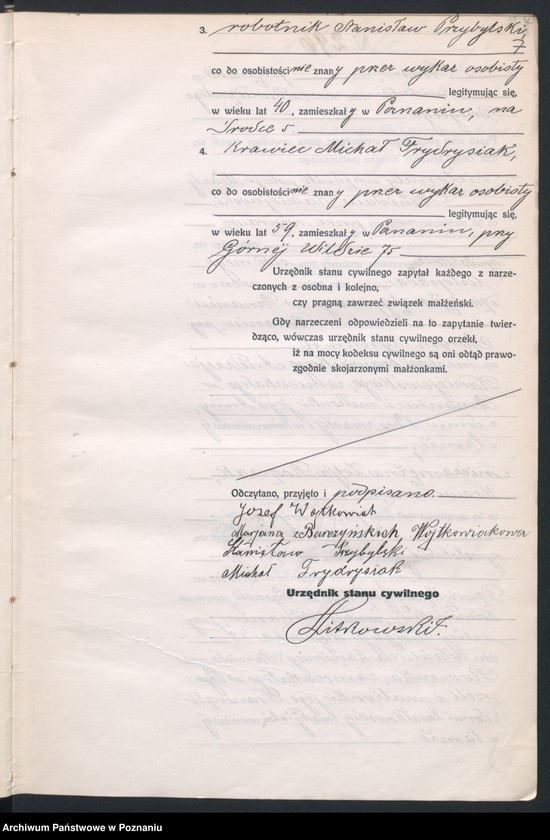 3. robotnik Stanisław Przybylski,
7
co do osobistości nie znany przez wykaz osobisty
legitymując się,
w wieku lat 40, zamieszkały w Poznaniu, na
Śródce 5.
4. Krawiec Michał Frydrysiak,
co do osobistości nie znany przez wykaz osobisty
legitymując się,
w wieku lat 59, zamieszkały w Poznaniu, przy
Górnej Wildzie 75
Urzędnik stanu cywilnego zapytał każdego z narze-
czonych z osobna i kolejno,
czy pragną zawrzeć związek małżeński.
Gdy narzeczeni odpowiedzieli na to zapytanie twier-
dząco, wówczas urzędnik stanu cywilnego orzekł,
iż na mocy kodeksu cywilnego są oni odtąd prawo-
zgodnie skojarzonymi małżonkami.
Odczytano, przyjęto i podpisano.
Jozef Wojtkowiak
Marjana z Barczyńskich, Wojtkowiakowa
Stanisław Przybylski
Michał Frydrysiak
Urzędnik stanu cywilnego
Archiwum Państwowe w Poznaniu